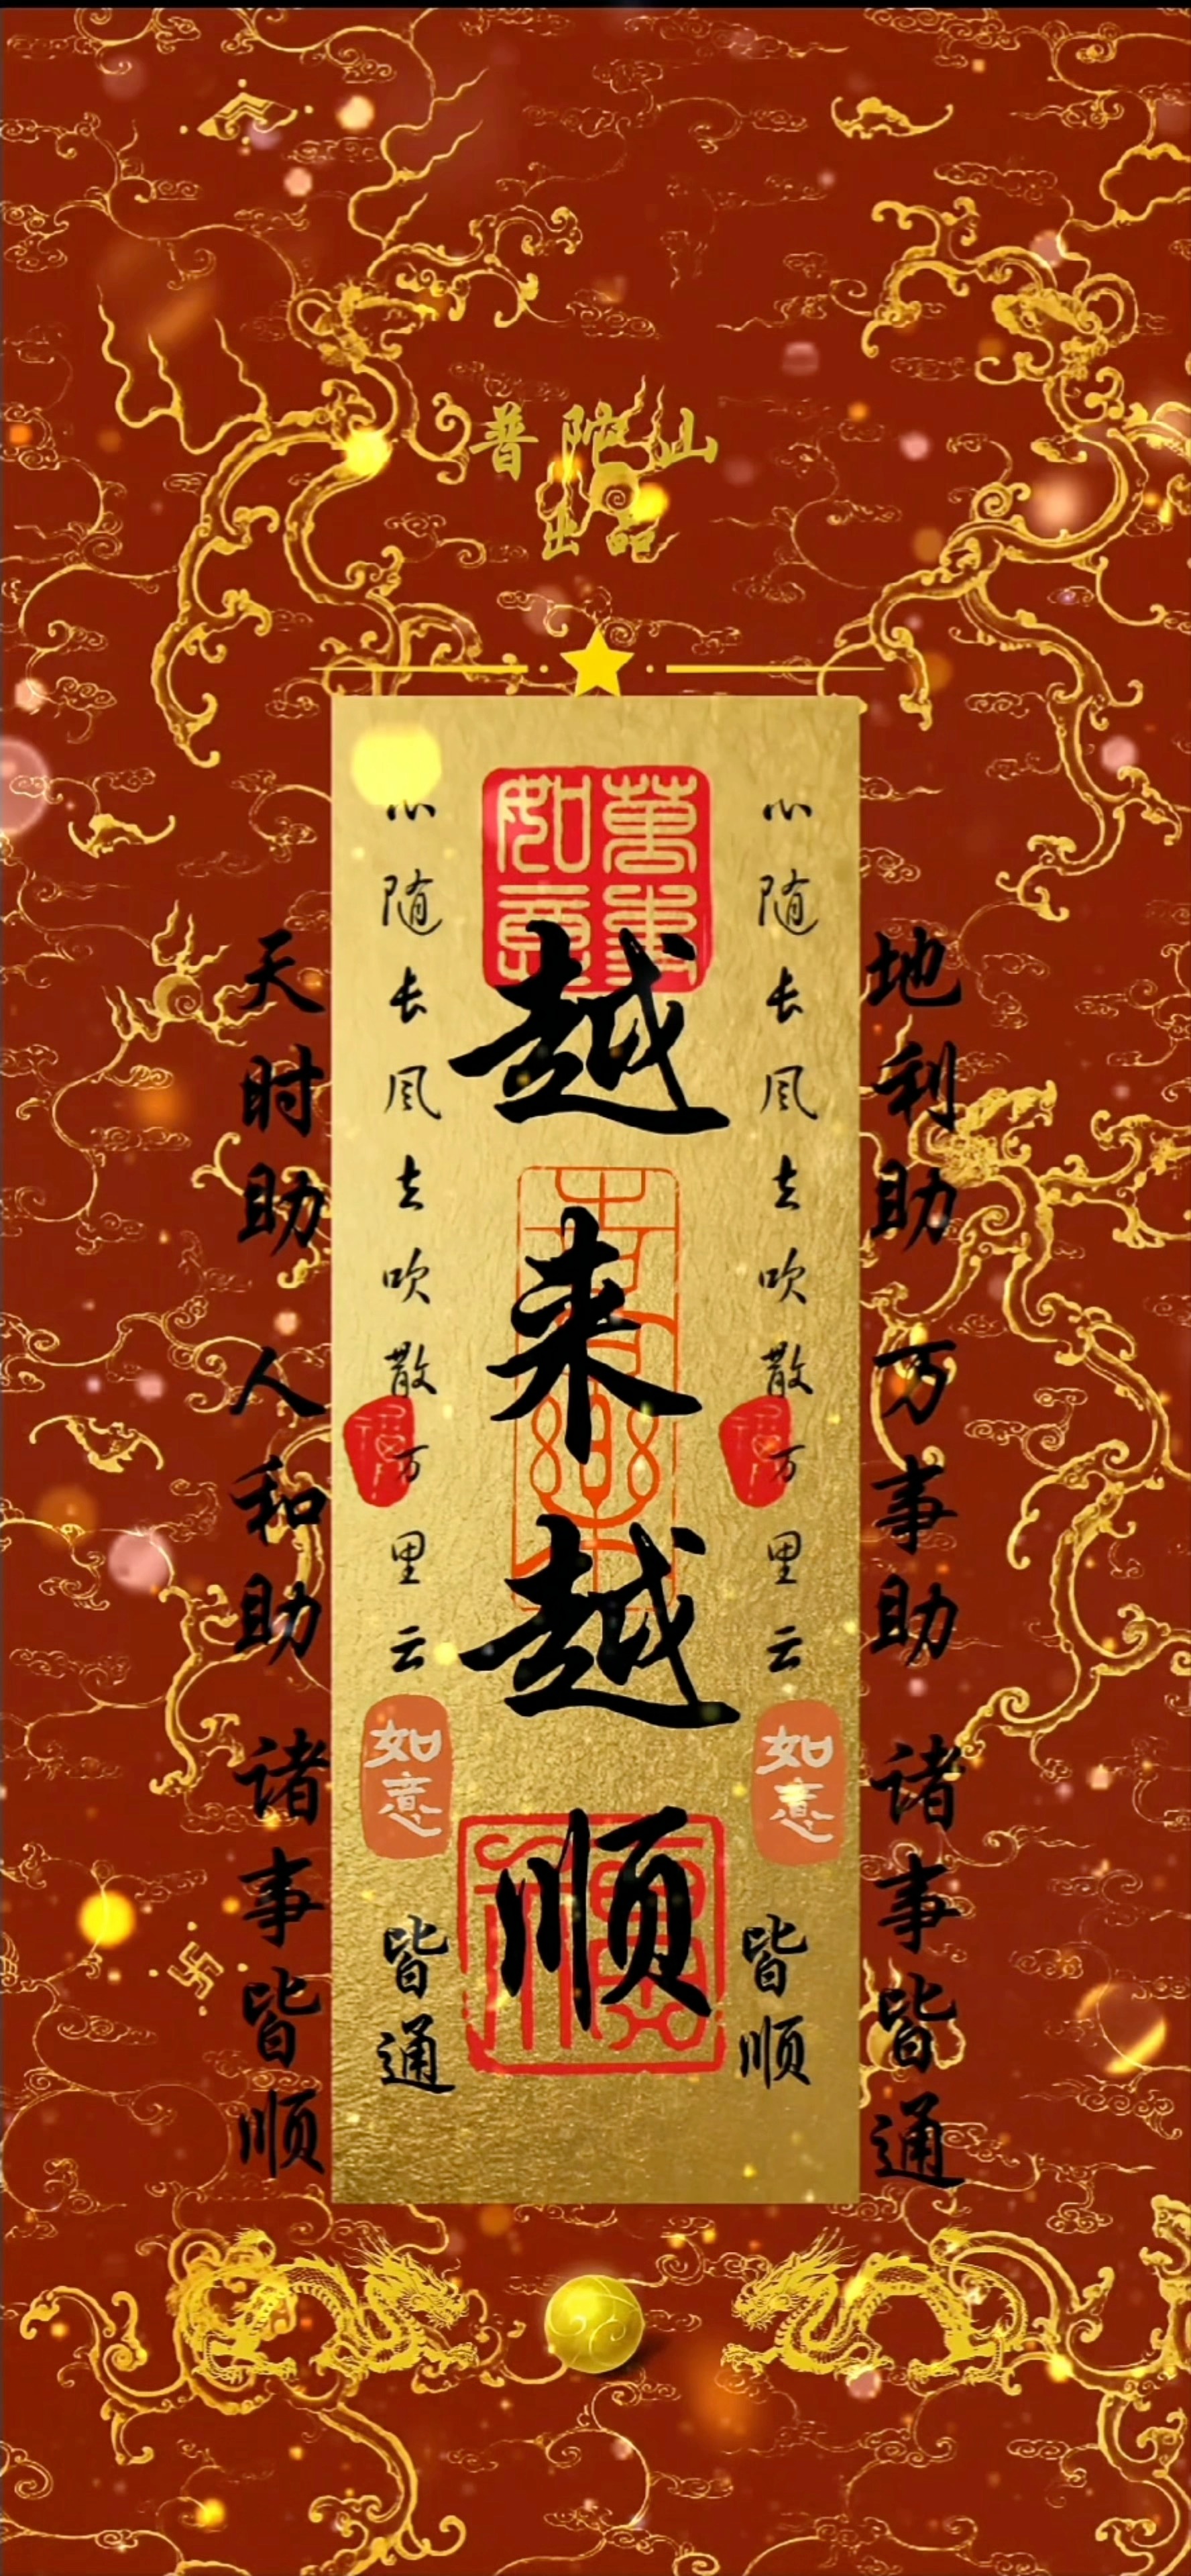 普陀山
出品
萬事如意
越来越顺
心随长风去吹散万里云
心随长风去吹散万里云
福
福
如意
如意
皆通
皆顺
天时助 人和助 诸事皆顺
地利助 万事助 诸事皆通